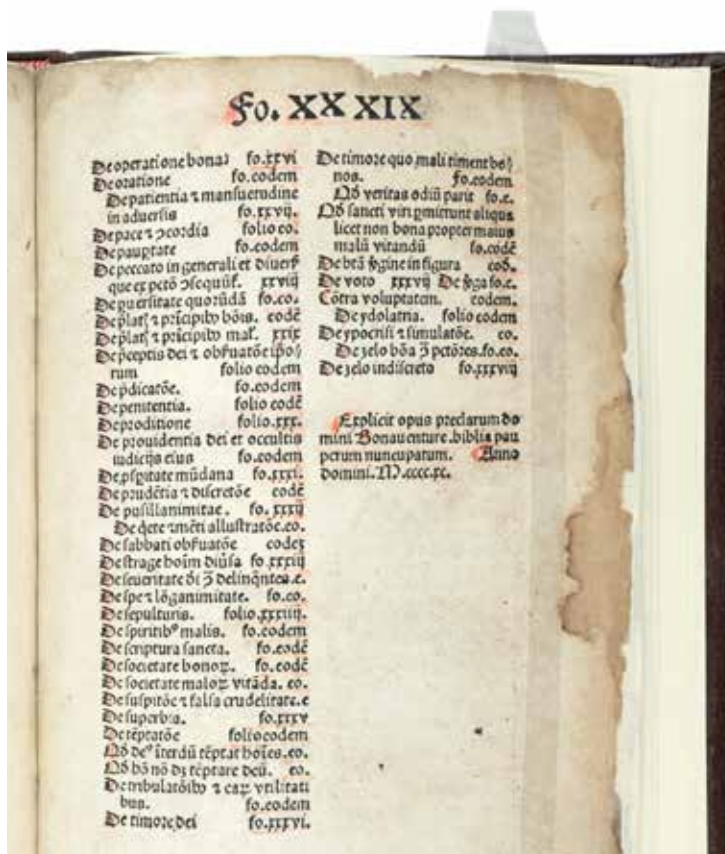 Fo. XX XIX
De operatione bonaꝝ fo.xxvi
De oratione fo.eodem
De patientia ⁊ mansuetudine
in aduersis fo.xxvij.
De pace ⁊ ↄcordia folio eo.
De paupꝛtate fo.eodem
De peccato in generali et diuers̕
que ex pctō ↄsequūt̕. xxviij
De ꝑuersitate quorūdā fo.eo.
De p̄lat̕ ⁊ prīcipibꝰ bōis. eodē
De p̄lat̕ ⁊ prīcipibꝰ mal̕. xxix
De p̄ceptis dei ⁊ obẜuatōe ipoꝝ
rum folio eodem
De p̄dicatōe. fo.eodem
De penitentia. folio eodē
De proditione folio.xxx.
De prouidentia dei et occultis
iudicijs eius fo.eodem
De ꝓsꝑitate mūdana fo.xxxi.
De prudētia ⁊ discretōe eodē
De pusillanimitae. fo.xxxij
De q̄ete ⁊ mēti allustratōe.eo.
De sabbati obẜuatōe eodeꝫ
De strage hoīm diūsa fo.xxxiij
De seueritate di ↄ̄ delinq̄ntes.e.
De spe ⁊ lōganimitate. fo.eo.
De sepulturis. folio.xxxiiij.
De spiritibꝰ malis. fo.eodem
De scriptura sancta. fo.eodē
De societate bonoꝝ. fo.eodē
De societate maloꝝ vitāda. eo.
De suspitōe ⁊ falsa crudelitate.e
De superbia. fo.xxxv
De tēptatōe folio eodem
Qd̕ deꝰ īterdū tēptat hoīes.eo.
Qd̕ hō nō dꝫ tēptare deū. eo.
De tribulatōibꝰ ⁊ eaꝝ vtilitati
bus. fo.eodem
De timore dei fo.xxxvi.
De timore quo mali timent boꝝ
nos. fo.eodem
Qd̕ veritas odiū parit fo.e.
Qd̕ sancti viri ꝑmittunt aliqua
licet non bona propter maius
malū vitandū fo.eodē
De btā ꝟgine in figura eod̕.
De voto xxxvij De ꝟga fo.e.
Cōtra voluptatem. eodem.
De ydolatria. folio eodem
De ypocrisi ⁊ simulatōe. eo.
De zelo bōa ↄ̄ pctōres.fo.eo.
De zelo indiscreto fo.xxxviij
Explicit opus preclarum do
mini Bonauenture.biblia pau
perum nuncupatum. Anno
domini.M.cccc.xc.